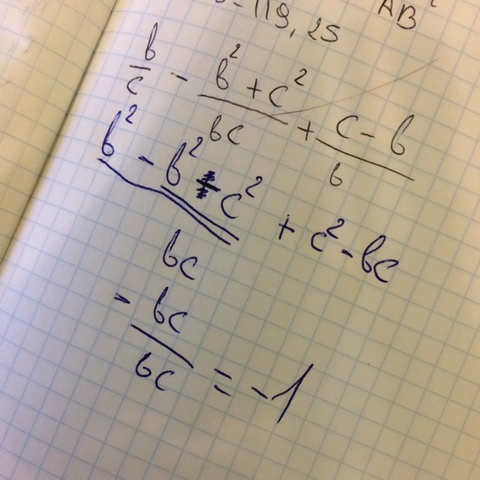 -119,25
AB
b/c - (b² + c²)/bc + (c - b)/b
(b² - b² - c² + c² - bc)/bc
- bc/bc = -1